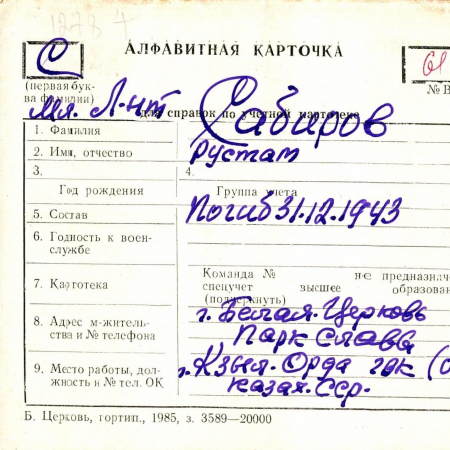 1278 4
АЛФАВИТНАЯ КАРТОЧКА
С
61
(первая бук-
ва фамилии)
№ В
Мл. Л-нт
для справок по учетной картотеке
Сабиров
1. Фамилия
2. Имя, отчество
Рустам
3.
4.
Год рождения
Группа учета
5. Состав
Погиб 31.12.1943
6. Годность к воен-
службе
7. Картотека
Команда № не предназначе
спецучет высшее образован
(подчеркнуть)
8. Адрес м-житель-
ства и № телефона
г. Белая-Церковь
Парк Славы
9. Место работы, дол-
жность и № тел. ОК
г. Кзыл-Орда
Казах. ССР.
Б. Церковь, гортип., 1985, з. 3589—20000